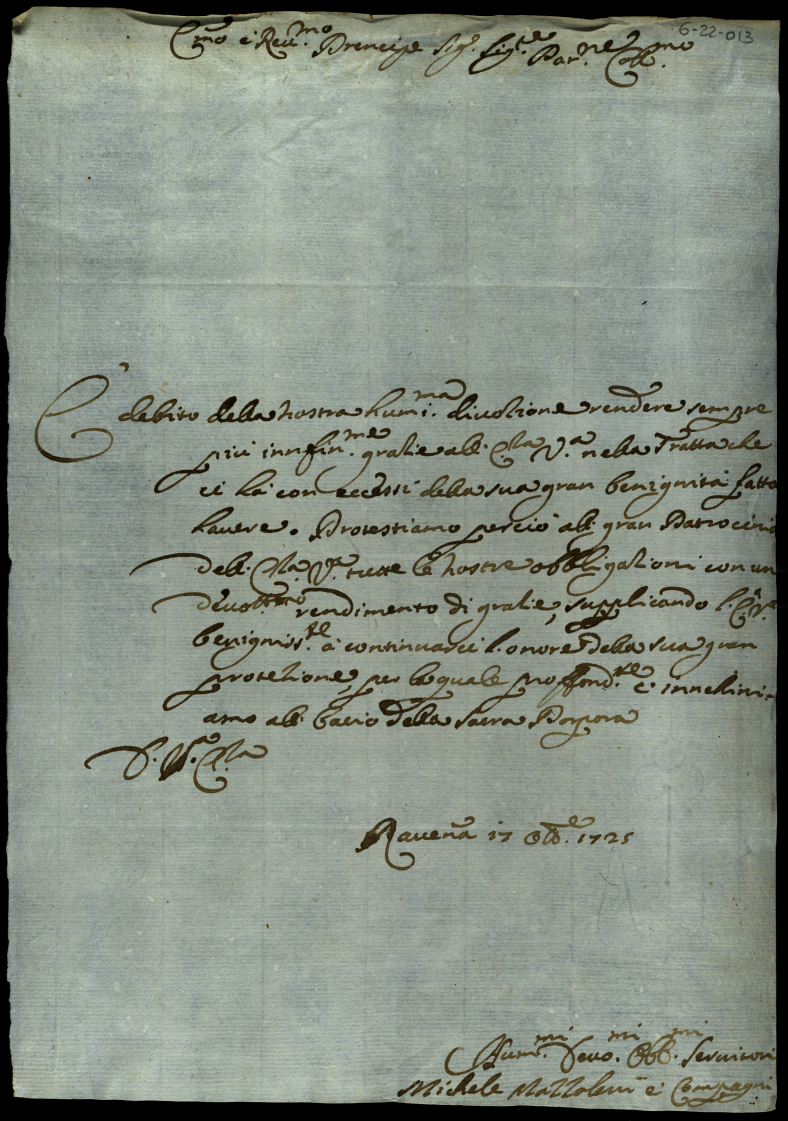 6-22-013
E.mo e Rev.mo Prencipe Sig.r Sig.re Pat.ne Coll.mo
È debito della nostra hum.ma divotione rendere sempre
più innfin.me gratie all' E.za V.a nella Tratta che
ci hà con eccessi della sua gran benignità fatto
havere. Protestiamo perciò all' gran Patrocinio
dell' E.za V.a tutte le nostre obbligationi con un
devott.mo rendimento di gratie, supplicando l' E.V.a
benigniss.te à continuarci l'onore della sua gran
protetione, per la quale proffond.te c' innchini-
amo all' bacio della sacra Porpora
D. V.a E.za
Ravenna 17 Ott.e 1725
Hum.mi Devo.mi Obb.mi Servitori
Michele Mazzoleni e Compagni